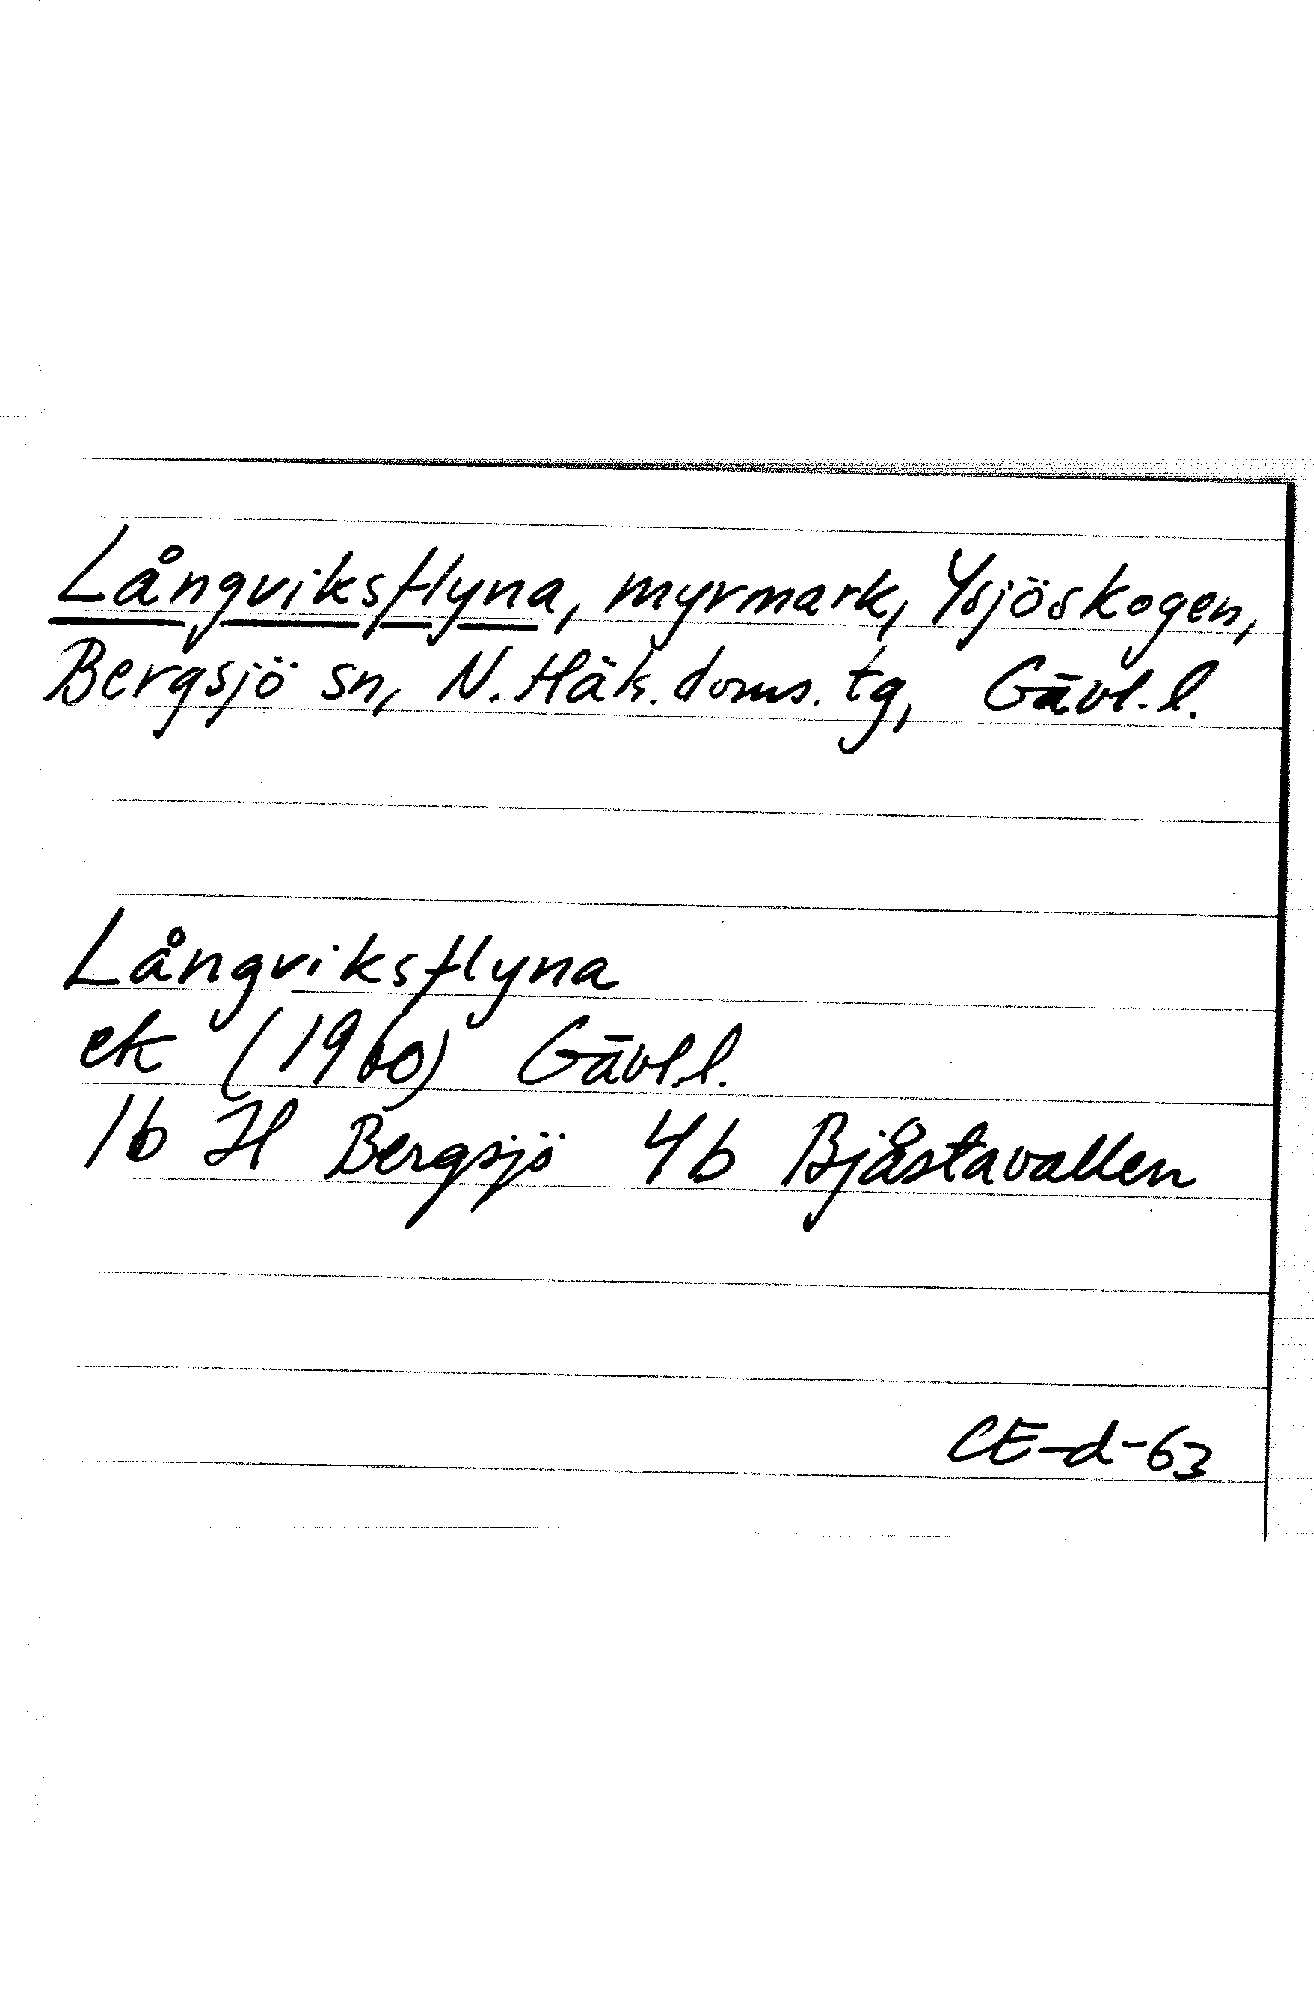 Långviksflyna, myrmark, Ysjöskogen,
Bergsjö sn, N. Häls. doms. tg, Gävl. l.
Långviksflyna
ek (1960) Gävl.l.
16 H Bergsjö 4b Bjåstavallen
CE-d-63